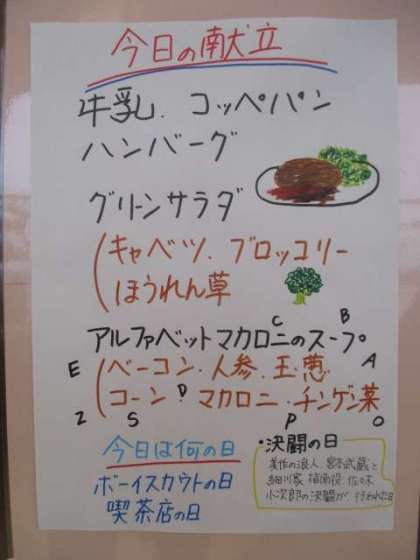 今日の献立
牛乳、コッペパン
ハンバーグ
グリーンサラダ
キャベツ、ブロッコリー
ほうれん草
C B
アルファベットマカロニのスープ
E ベーコン・人参・玉葱 A
コーン D マカロニ・チンゲン菜
Z S P O
今日は何の日
ボーイスカウトの日
喫茶店の日
・決闘の日
美作の浪人、宮本武蔵と
細川家、指南役、佐々木
小次郎の決闘が、行われた日